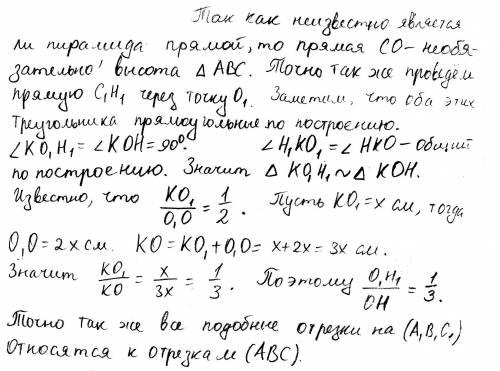 Так как неизвестно является
ли пирамида прямой, то прямая CO - необя-
зательно высота △ ABC. Точно так же проведём
прямую C₁H₁ через точку O₁. Заметим, что оба этих
треугольника прямоугольные по построению.
∠KO₁H₁ = ∠KOH = 90°. ∠H₁KO₁ = ∠HKO - общий
по построению. Значит △ KO₁H₁ ~ △ KOH.
Известно, что KO₁/O₁O = 1/2. Пусть KO₁ = x см, тогда
O₁O = 2x см. KO = KO₁ + O₁O = x + 2x = 3x см.
Значит KO₁/KO = x/3x = 1/3. Поэтому O₁H₁/OH = 1/3.
Точно так же все подобные отрезки на (A₁B₁C₁)
относятся к отрезкам (ABC).